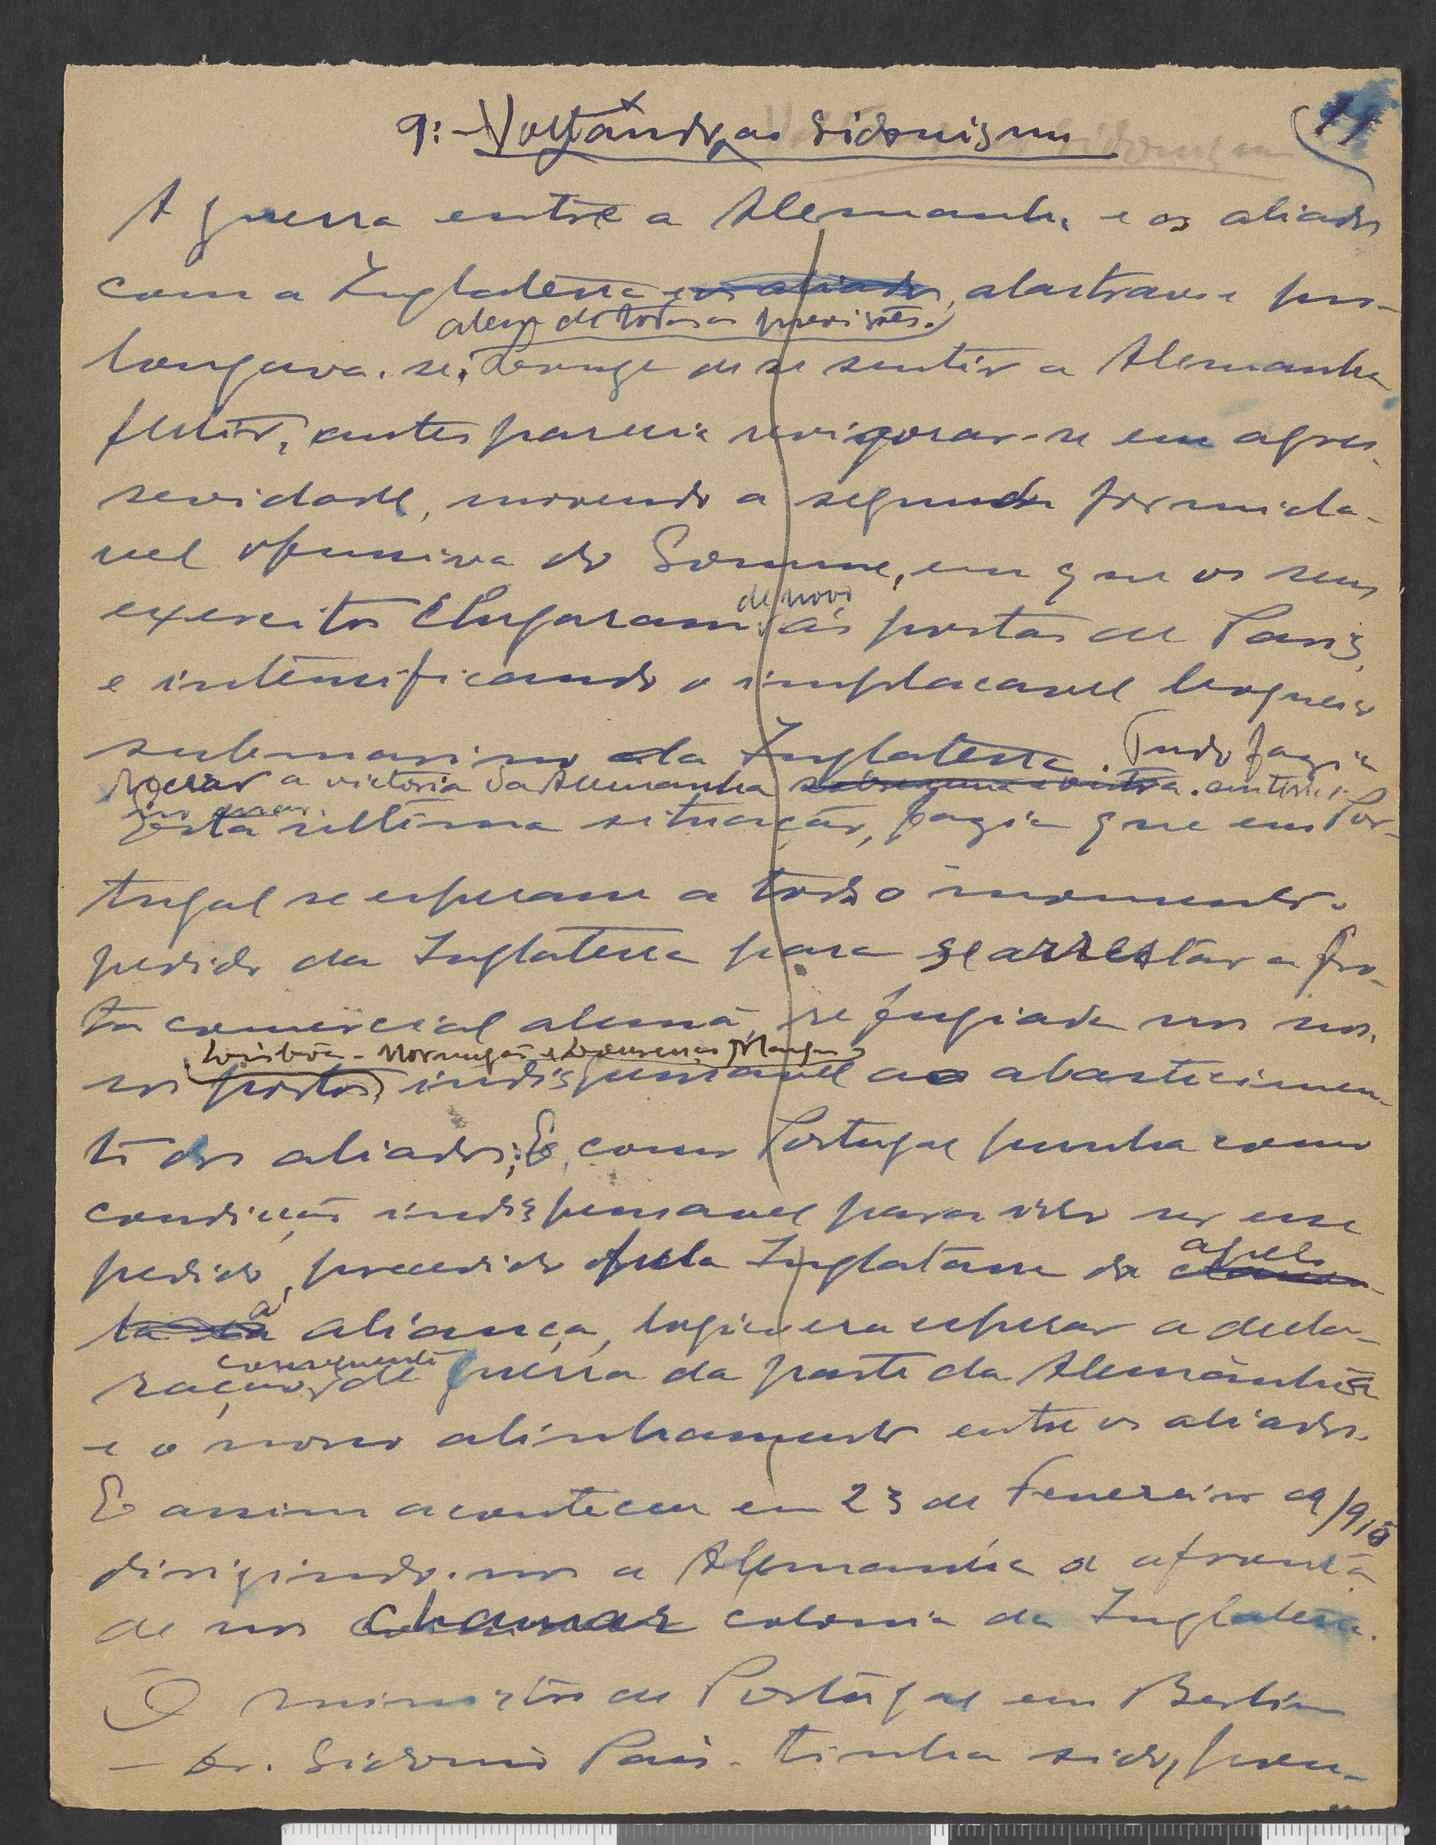 9: - Voltando ao Sidonismo
11
A guerra entre a Alemanha e os aliados
com a Inglaterra e os aliados, alastrava e pro-
alem de todas as previsões.
longava-se. Longe de se sentir a Alemanha
antes parecia revigorar-se em agres-
sevidade, movendo a segunda formida-
vel ofensiva do Somme, em que os seus
de novo
exercitos chegaram ás portas de Paris,
e intensificando o implacavel bloqueio
submarino da Inglaterra. Tudo fazia
recear a victoria da Alemanha
no mar.
Esta ultima situação, fazia que em Por-
tugal se esperasse a todo o momento o
pedido da Inglaterra para se arrestar a fro-
ta comercial alemã, refugiada nos nos-
Lisboa - Mormugão e Lourenço Marques
sos portos, indispensavel ao abastecimen-
to dos aliados; E, como Portugal punha como
condição indispensavel para isso ser esse
apelo
pedido, precedido pela Inglaterra do
á
aliança, logico era esperar a decla-
consequente
ração de guerra da parte da Alemanha
e o nosso alinhamento entre os aliados.
E assim aconteceu em 23 de Fevereiro de
dirigindo-nos a Alemanha a afronta
de nos chamar colonia da Inglaterra.
O ministro de Portugal em Berlim
- Dr. Sidonio Pais - tinha sido,